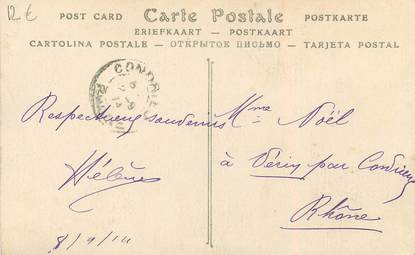 12 €
POST CARD Carte Postale POSTKARTE
BRIEFKAART — POSTKAART
CARTOLINA POSTALE — ОТКРЫТОК ПИСЬМО — TARJETA POSTAL
CONDRIEU
Respectueux souvenirs
Hélène
8/9/14
Mme Noël
à Vérin par Condrieu
Rhône